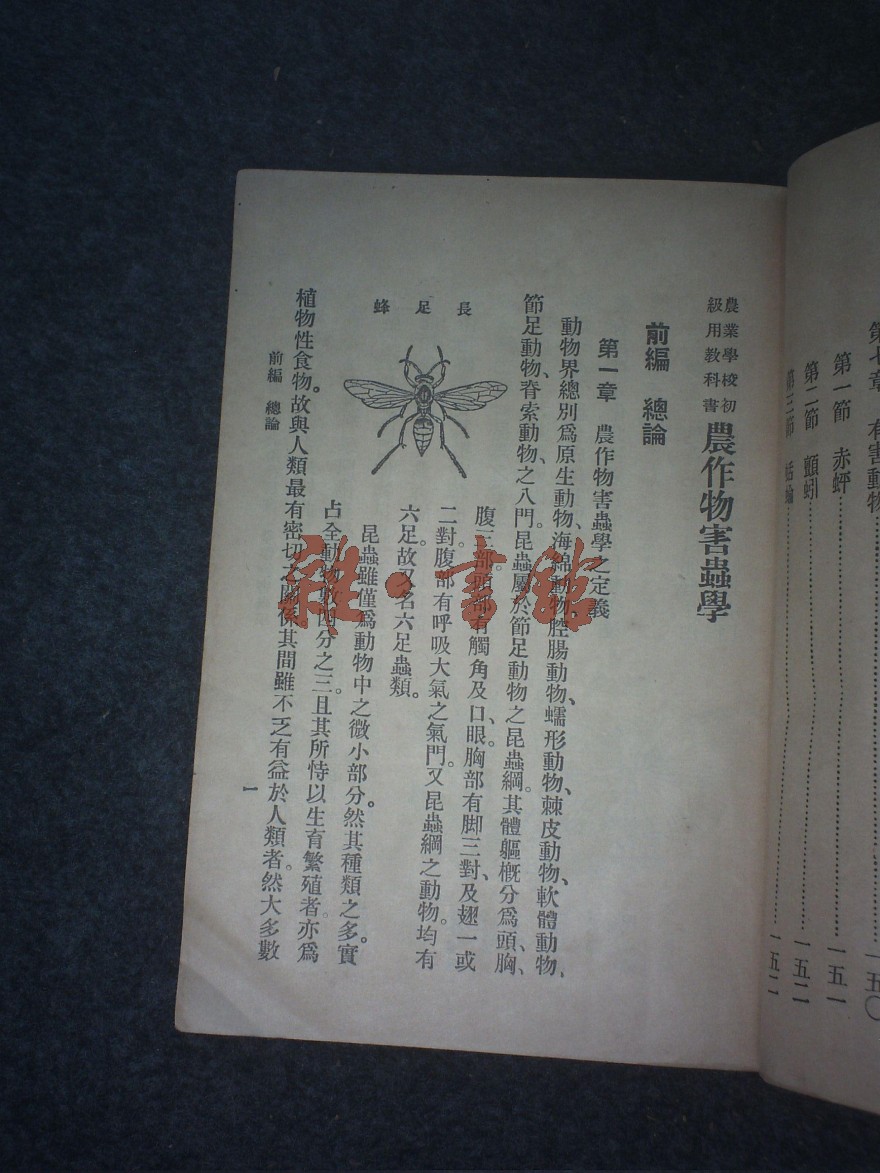 第七章 有害動物……一五〇
第一節 赤蟀……一五一
第二節 顫蚓……一五二
第三節 蛞蝓……一五二
農業學校初
級用教科書
農作物害蟲學
前編 總論
第一章 農作物害蟲學之定義
動物界總別爲原生動物、海綿動物、腔腸動物、蠕形動物、棘皮動物、軟體動物、
節足動物、脊索動物、之八門。昆蟲屬於節足動物之昆蟲綱。其體軀概分爲頭、胸、
腹三部。頭部有觸角及口、眼。胸部有脚三對、及翅一或
二對。腹部有呼吸大氣之氣門。又昆蟲綱之動物。均有
六足。故又名六足蟲類。
長足蜂
昆蟲雖僅爲動物中之微小部分。然其種類之多。實
占全動物數四分之三。且其所恃以生育繁殖者。亦爲
植物性食物。故與人類最有密切之關係。其間雖不乏有益於人類者。然大多數
前編 總論
一
雜·書館